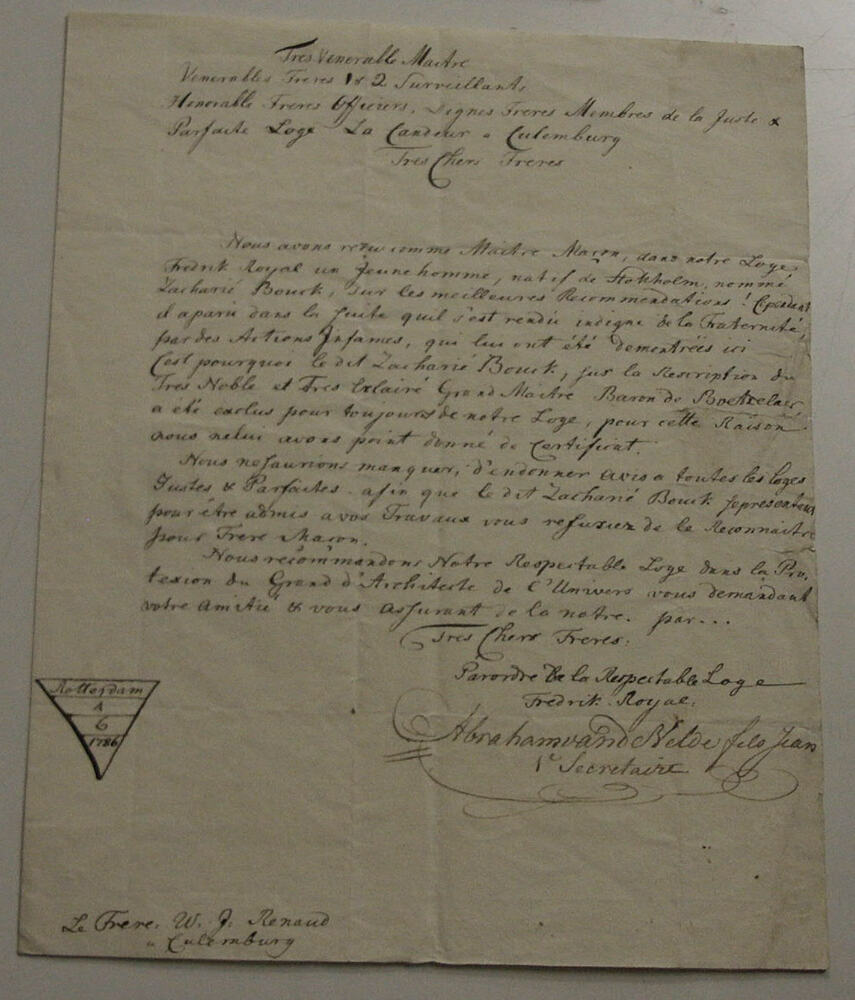 Tres Venerable Maitre
Venerables Freres 1 & 2 Surveillants
Honorable Freres Officiers, Dignes Freres Membres de la Juste &
Parfaite Loge La Candeur a Culemburg
Tres Chers Freres
Nous avons recu comme Maitre Maçon, dans notre Loge
Fredrik Royal un jeune homme, natif de Stokholm, nommé
Zacharié Bouck, sur les meilleures Recommendations! Cependant
il aparu dans la suite quil s'est rendu indigne de la Fraternité,
par des Actions Infames, qui lui ont été dementrées ici
C'est pourquoi le dit Zacharié Bouck, sur la Rescription du
Tres Noble et Tres Eclairé Grand Maitre Baron de Boetzelaer
a eté exclus pour toujours de notre Loge, pour cette Raison
nous nelui avons point donné de Certificat.
Nous nesaurions manquer, d'endonner avis a toutes les loges
Justes & Parfaites afin que le dit Zacharié Bouck sepresentant
pour étre admis a vos Travaux vous refusiez de le Reconnaitre
pour Frere Macon.
Nous recommandons Notre Respectable Loge dans la Pro,
texion du Grand d'Architecte de l'Univers vous demandant
votre Amitié & vous assurant de la notre. par...
Tres Chers Freres:
Parordre de la Respectable Loge
Fredrik Royal:
Abraham vand Velde fils Jean
1r Secretaire
Rotterdam
4
6
1786
Le Frere, W. J. Renaud
a Culemburg